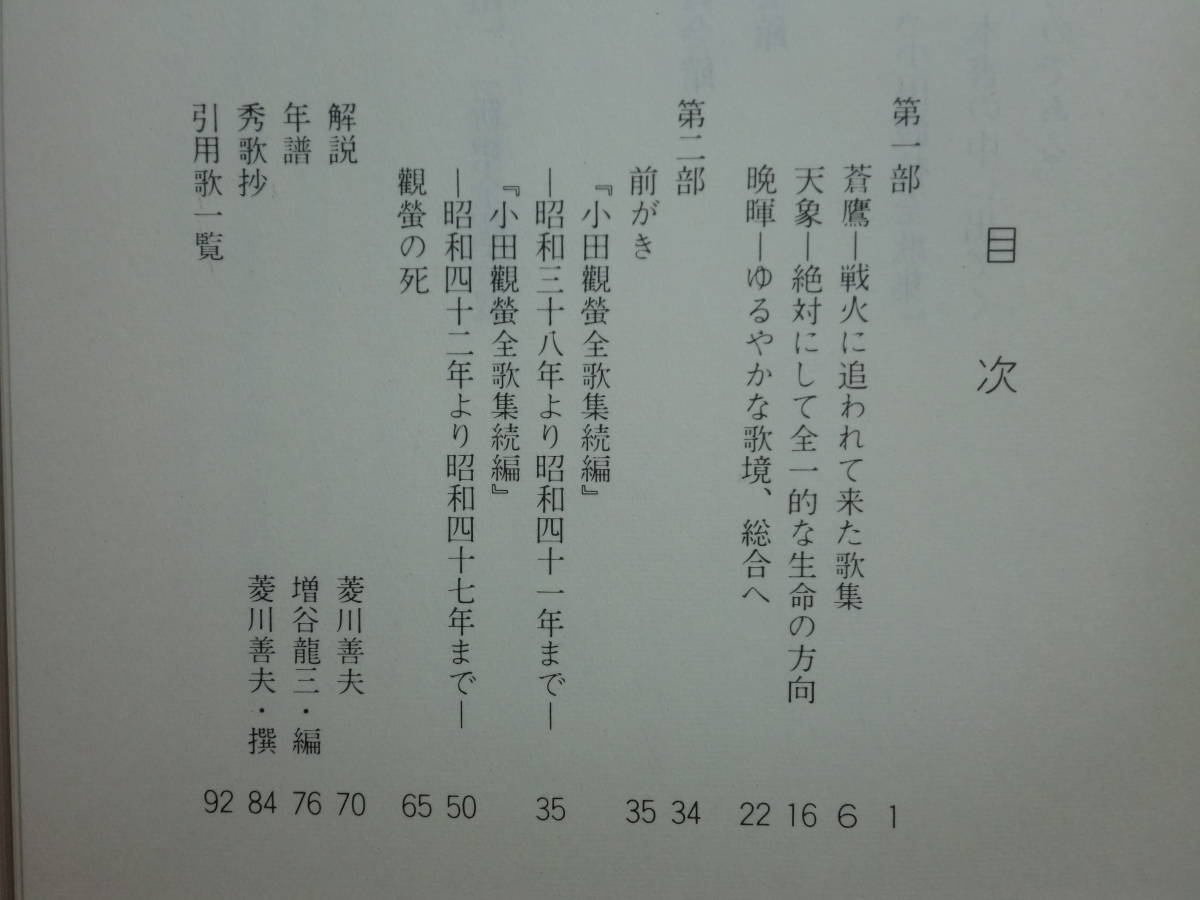 目次
第一部 1
蒼鷹―戦火に追われて来た歌集 6
天象―絶対にして全一的な生命の方向 16
晩暉―ゆるやかな歌境、総合へ 22
第二部 34
前がき 35
『小田觀螢全歌集続編』
―昭和三十八年より昭和四十一年まで― 35
『小田觀螢全歌集続編』
―昭和四十二年より昭和四十七年まで― 50
觀螢の死 65
解説 菱川善夫 70
年譜 増谷龍三・編 76
秀歌抄 菱川善夫・撰 84
引用歌一覧 92